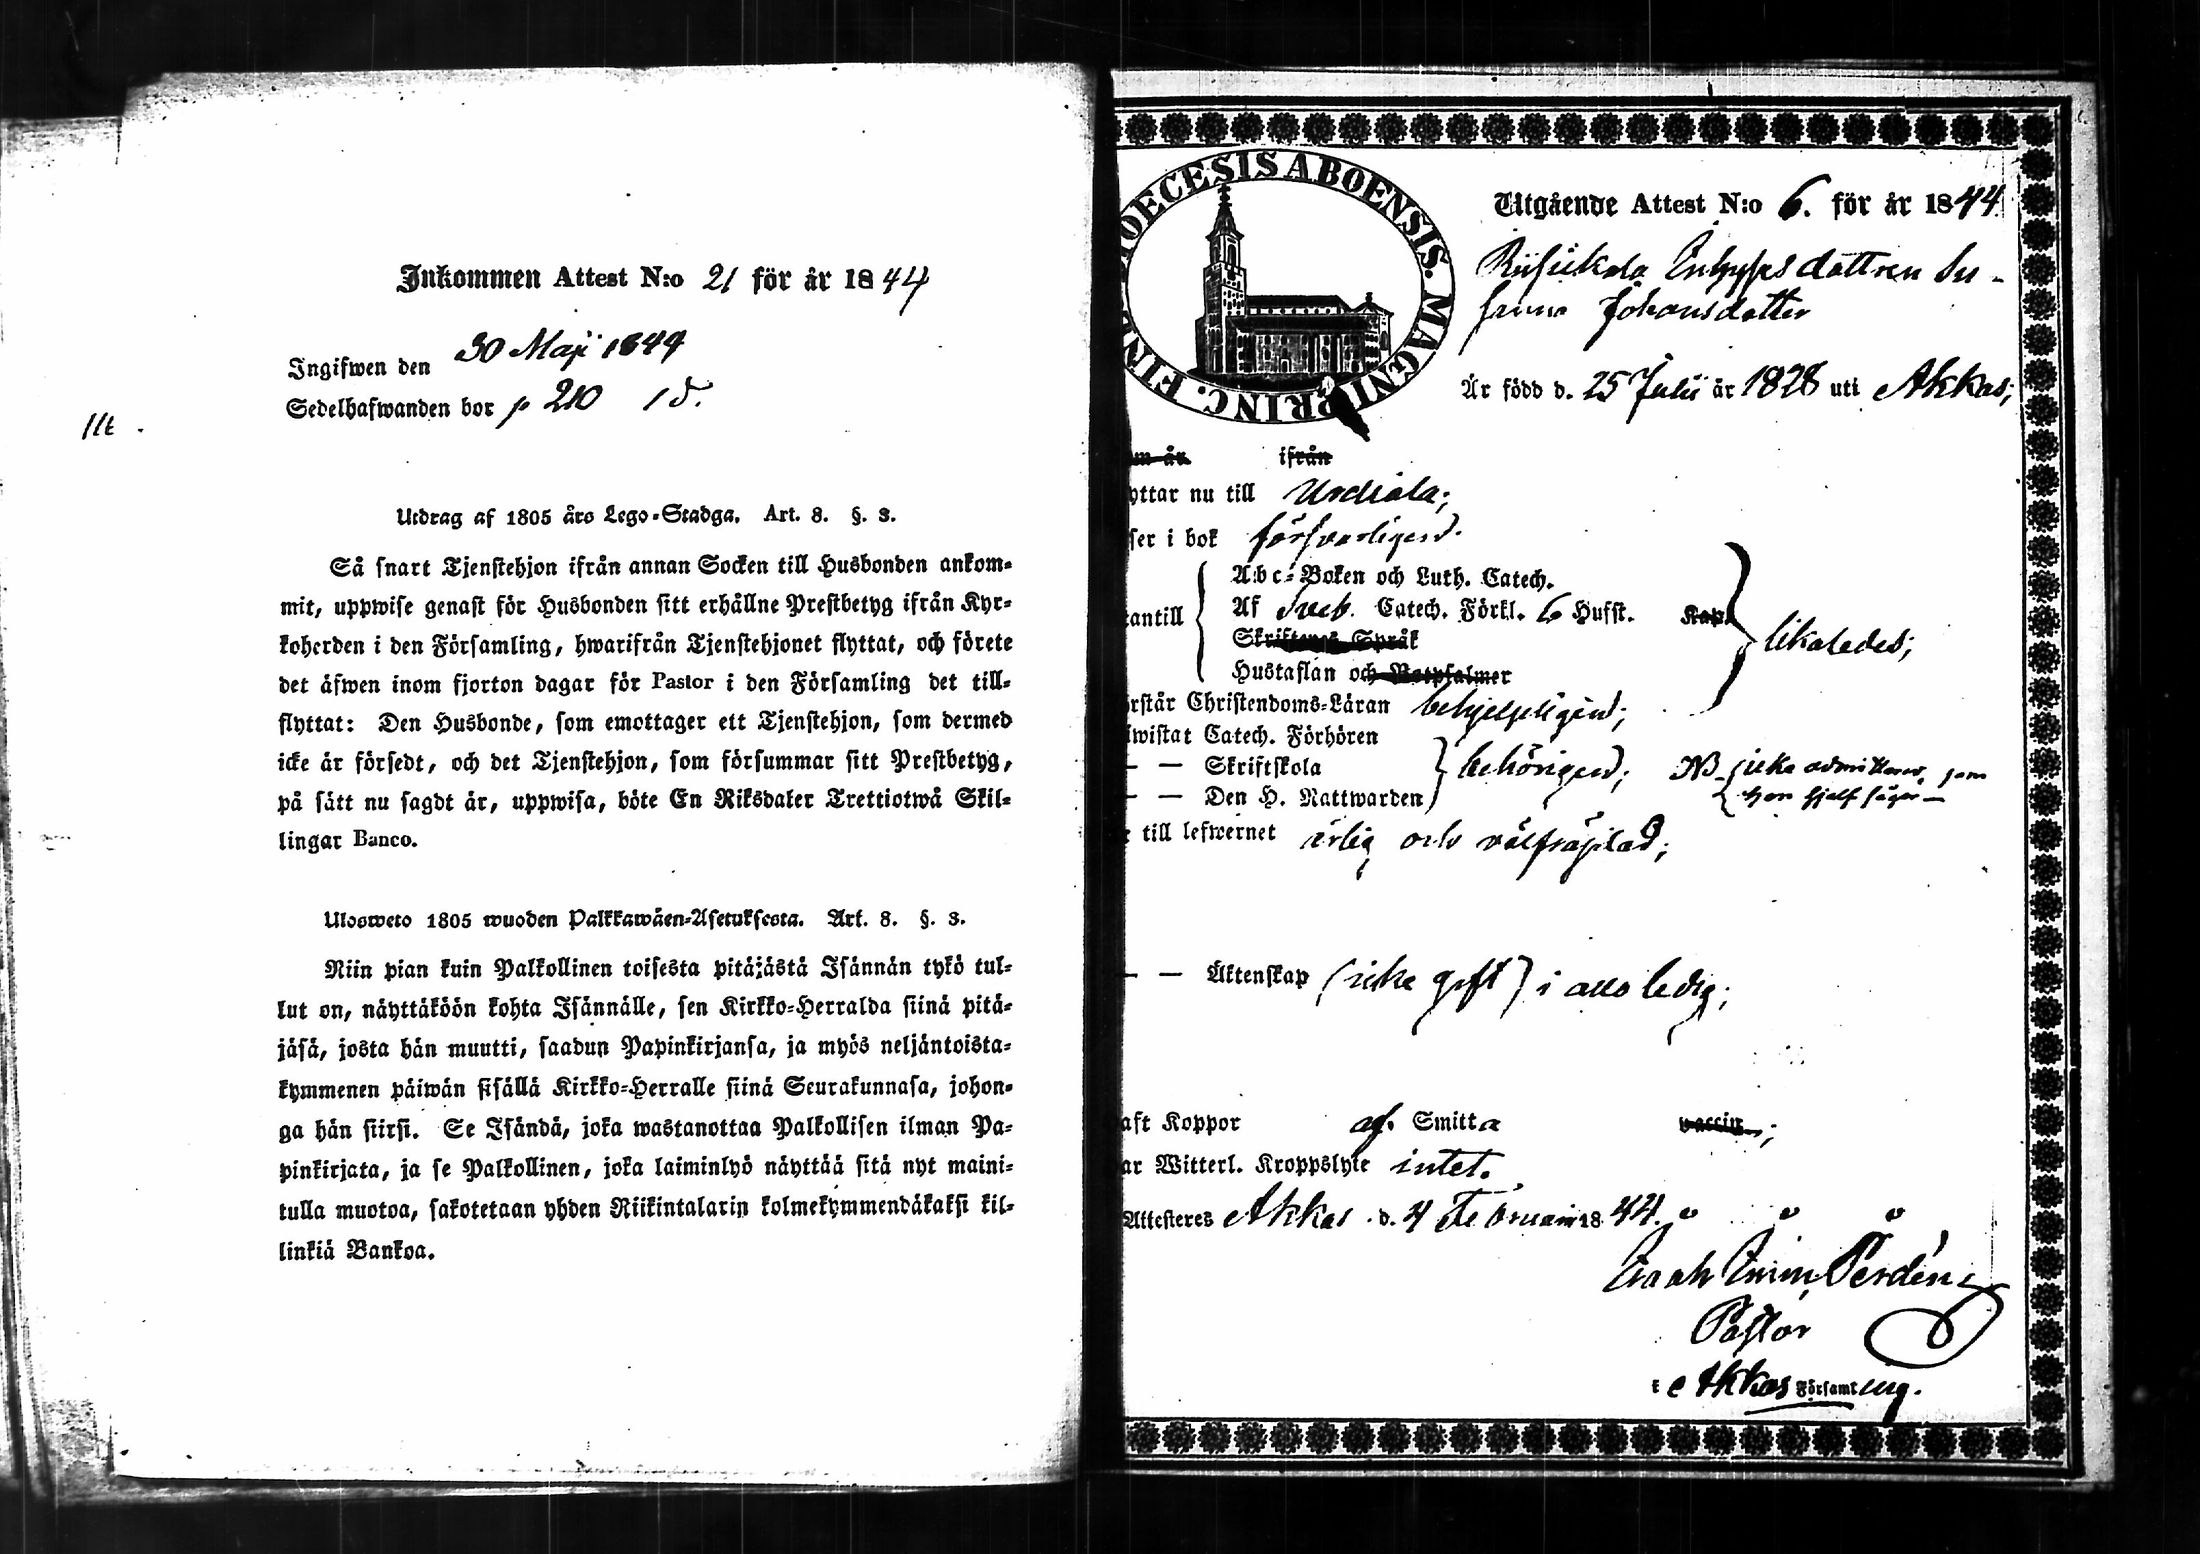 Inkommen Attest N:o 21 för år 1844
Ingifwen den 30 Maji 1844
Sedelhafwanden bor p 210
Utdrag af 1805 års Lego-Stadga. Art. 8. §. 3.
Så snart Tjenstehjon ifrån annan Socken till Husbonden ankom-
mit, uppwise genast för Husbonden sitt erhållne Prestbetyg ifrån Kyr-
koherden i den Församling, hwarifrån Tjenstehjonet flyttat, och förete
det äfwen inom fjorton dagar för Pastor i den Församling det till-
flyttat: Den Husbonde, som emottager ett Tjenstehjon, som dermed
icke är försedt, och det Tjenstehjon, som försummar sitt Prestbetyg,
på sätt nu sagdt är, uppwisa, böte En Riksdaler Trettiotwå Skil-
lingar Banco.
Ulosweto 1805 wuoden Palkkawäen-Asetuksesta. Art. 8. §. 3.
Niin pian kuin Palkollinen toisesta pitäjästä Isännän tykö tul-
lut on, näyttäköön kohta Isännälle, sen Kirkko-Herralda siinä pitä-
jäsä, josta hän muutti, saadun Papinkirjansa, ja myös neljäntoista-
kymmenen päiwän sisällä Kirkko-Herralle siinä Seurakunnasa, johon-
ga hän siirsi. Se Isändä, joka wastanottaa Palkollisen ilman Pa-
pinkirjata, ja se Palkollinen, joka laiminlyö näyttää sitä nyt maini-
tulla muotoa, sakotetaan yhden Riikintalarin kolmekymmendäkaksi kil-
linkiä Bankoa.
DIOECESIS ABOENSIS. MAGNI PRINC. FINL
Utgående Attest N:o 6. för år 1844
Su-
sanna Johansdotter
Är född d. 25 Julii år 1828 uti Akkas;
m år ifrån
yttar nu till Urdiala;
ser i bok försvarligend.
Abc-Boken och Luth. Catech.
antill Af Sveb. Catech. Förkl. 6 Hufst. Kap. likaledes;
Skriftenes Språk
Hustaflan och Botpsalmer
rstår Christendoms-Läran behjelpligend;
iwistat Catech. Förhören
— — Skriftskola behörigend; NB icke admitterad, som
— — Den H. Nattwarden hon sjelf säger —
till lefwernet ärlig och välfräjdad;
— — Äktenskap (icke gift) i allo ledig;
aft Koppor af Smitta vaccin;
ar Witterl. Kroppslyte intet.
Attesteres Akkas d. 4 Februarii 1844.
Pastor
i Akkas Församling.